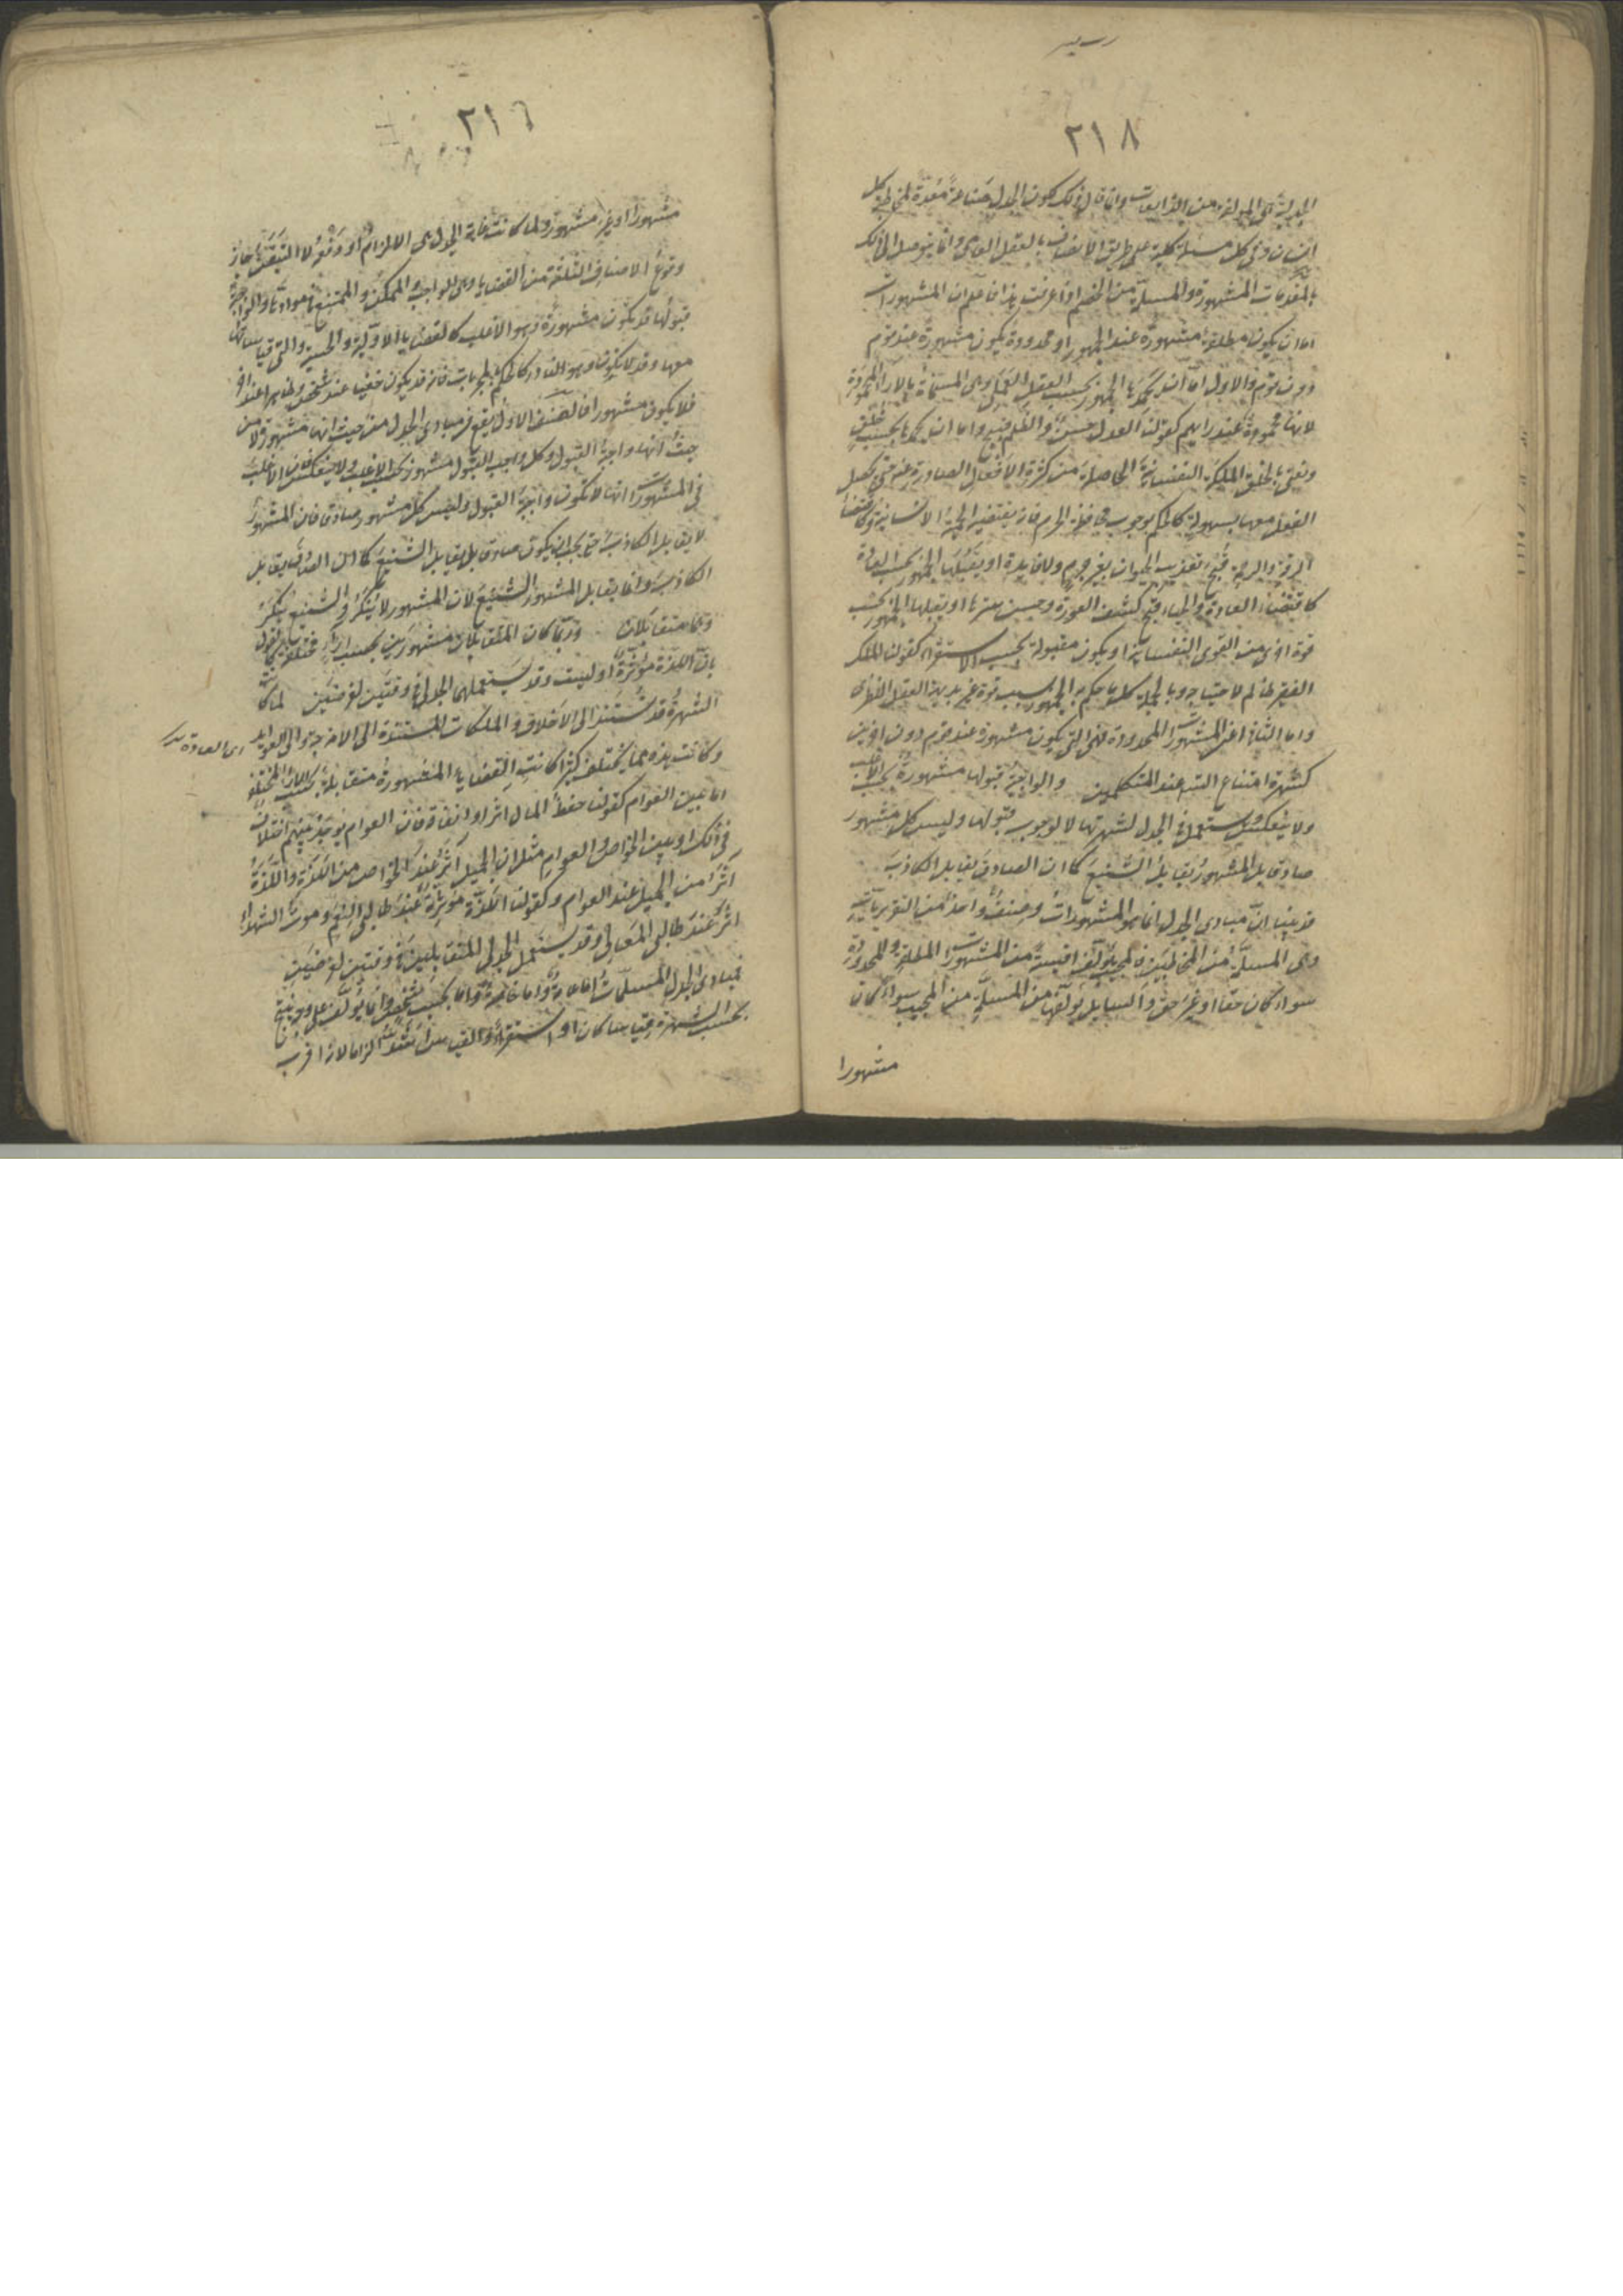 ٢١٨
الجدلية هى المؤلفة من الذايعات وانا قال ذلك كون الجدل صناعة معدة لمخاطبة كل
انسان فى كل مسئلة كلية على طريق الانصاف بالعقل العامى وانما يتوصل الى ذلك
بالمقدمات المشهورة والمسلمة من الخصم اذا عرفت هذا فاعلم ان المشهورات
اما ان يكون مطلقة مشهورة عند الجمهور او محدودة يكون مشهورة عند قوم
دون قوم والاول اما ان يحمدها الجمهور بحسب العقل العملى وهى المسماة بالاراء المحمودة
لانها محمودة عند رايهم كقولنا العدل حسن والظلم قبيح واما ان يحمدها بحسب خلق
ونعنى بالخلق الملكة النفسانية الحاصلة من كثرة الافعال الصادرة عنه حتى يحصل
الفعل معها بسهولة كالحكم بوجوب محافظة الحرم فانه يقتضيه الحمية الانسانية وكاقتضاء
الرقة والرحمة قبح تعذيب الحيوان بغير جرم ولا فايدة او يقبلها الجمهور بحسب العادة
كاقتضاء العادة والحياء قبح كشف العورة وحسن سترها او يقبلها الجمهور بحسب
قوة اخرى من القوى النفسانية او يكون مقبولة بحسب الاستقراء كقولنا الملك
الفقير ظالم لاحتياجه وبالجملة كل ما حكم به الجمهور بسبب قوة غير بديهة العقل النظرى
واما الثانى اعنى المشهورات المحدودة فهى التى يكون مشهورة عند قوم دون اخرين
كشهرة امتناع التسلسل عند المتكلمين والواجبة قبولها مشهورة بحسب الاغلب
ولا ينعكس ويستعمل فى الجدل لشهرتها لا لوجوب قبولها وليس كل مشهور
صادق بل المشهور يقابل الشنيع كما ان الصادق يقابل الكاذب
قد بينا ان مبادى الجدل انما هو المشهورات وصنف واحد من التقريريات
وهى المسلمة من المخاطبين فالمجيب يؤلف اقيسة من المشهورات المطلقة والمحدودة
سواء كان حقا او غير حق والسايل يؤلفها من المسلمة من المجيب سواء كان
مشهورا
٢١٩
مشهورا او غير مشهور ولما كانت غاية الجدل هى الالزام او دفعه لا اليقين جاز
وقوع الاصناف الثلثة من القضايا وهى الواجب والممكن والممتنع فى موادها والواجبة
قبولها قد يكون مشهورة وهو الاغلب كالقضايا الاولية والحسية والتى قياساتها
معها وقد لا يكون وهو النادر كالحكم بالمجربات فانه قد يكون خفيا عند شخص وظاهرا عند اخر
فلا يكون مشهورا فالصنف الاول يقع فى مبادى الجدل من حيث انها مشهورة لا من
حيث انها واجبة القبول وكل واجب القبول مشهور بحسب الاغلب ولا ينعكس فان الاغلب
فى المشهورات انها لا تكون واجبة القبول وليس كل مشهور صادق فان المشهور
لا يقابل الكاذب حتى يجب ان يكون صادق بل يقابل الشنيع كما ان الصادق يقابل
الكاذب وانما يقابل المشهور الشنيع لان المشهور لا ينكر والشنيع ينكر
وهما متقابلان وربما كان المتقابلان مشهورين بحسب اراء مختلفة كالقول
بان اللذة مؤثرة او ليست وقد يستعملهما الجدلى فى وقتين لغرضين لما كانت
الشهرة قد تستند الى الاخلاق والملكات المستندة الى الامزجة والى العوايد
اى العادة
وكانت هذه مما يختلف كثيرا كانت القضايا المشهورة متقابلة بحسب الاراء المختلفة
اما بين العوام كقولنا حفظ المال اثر او انفاقه فان العوام يوجد بينهم اختلاف
فى ذلك او بين الخواص والعوام مثل ان الجميل اثر عند الخواص من اللذة واللذة
اثر من الجميل عند العوام وكقولنا اللذة مؤثرة عند طالبى النعم وموت الشهداء
اثر عند طالبى المعالى وقد يستعمل الجدلى المتقابلين فى وقتين لغرضين
فمبادى الجدل المسلمات اما عامة واما خاصة واما بحسب شخص وانما يؤلف على وجه ينتج
بحسب الشهرة قياسا كان او استقراء والقياس اشد الزاما لانه اقرب